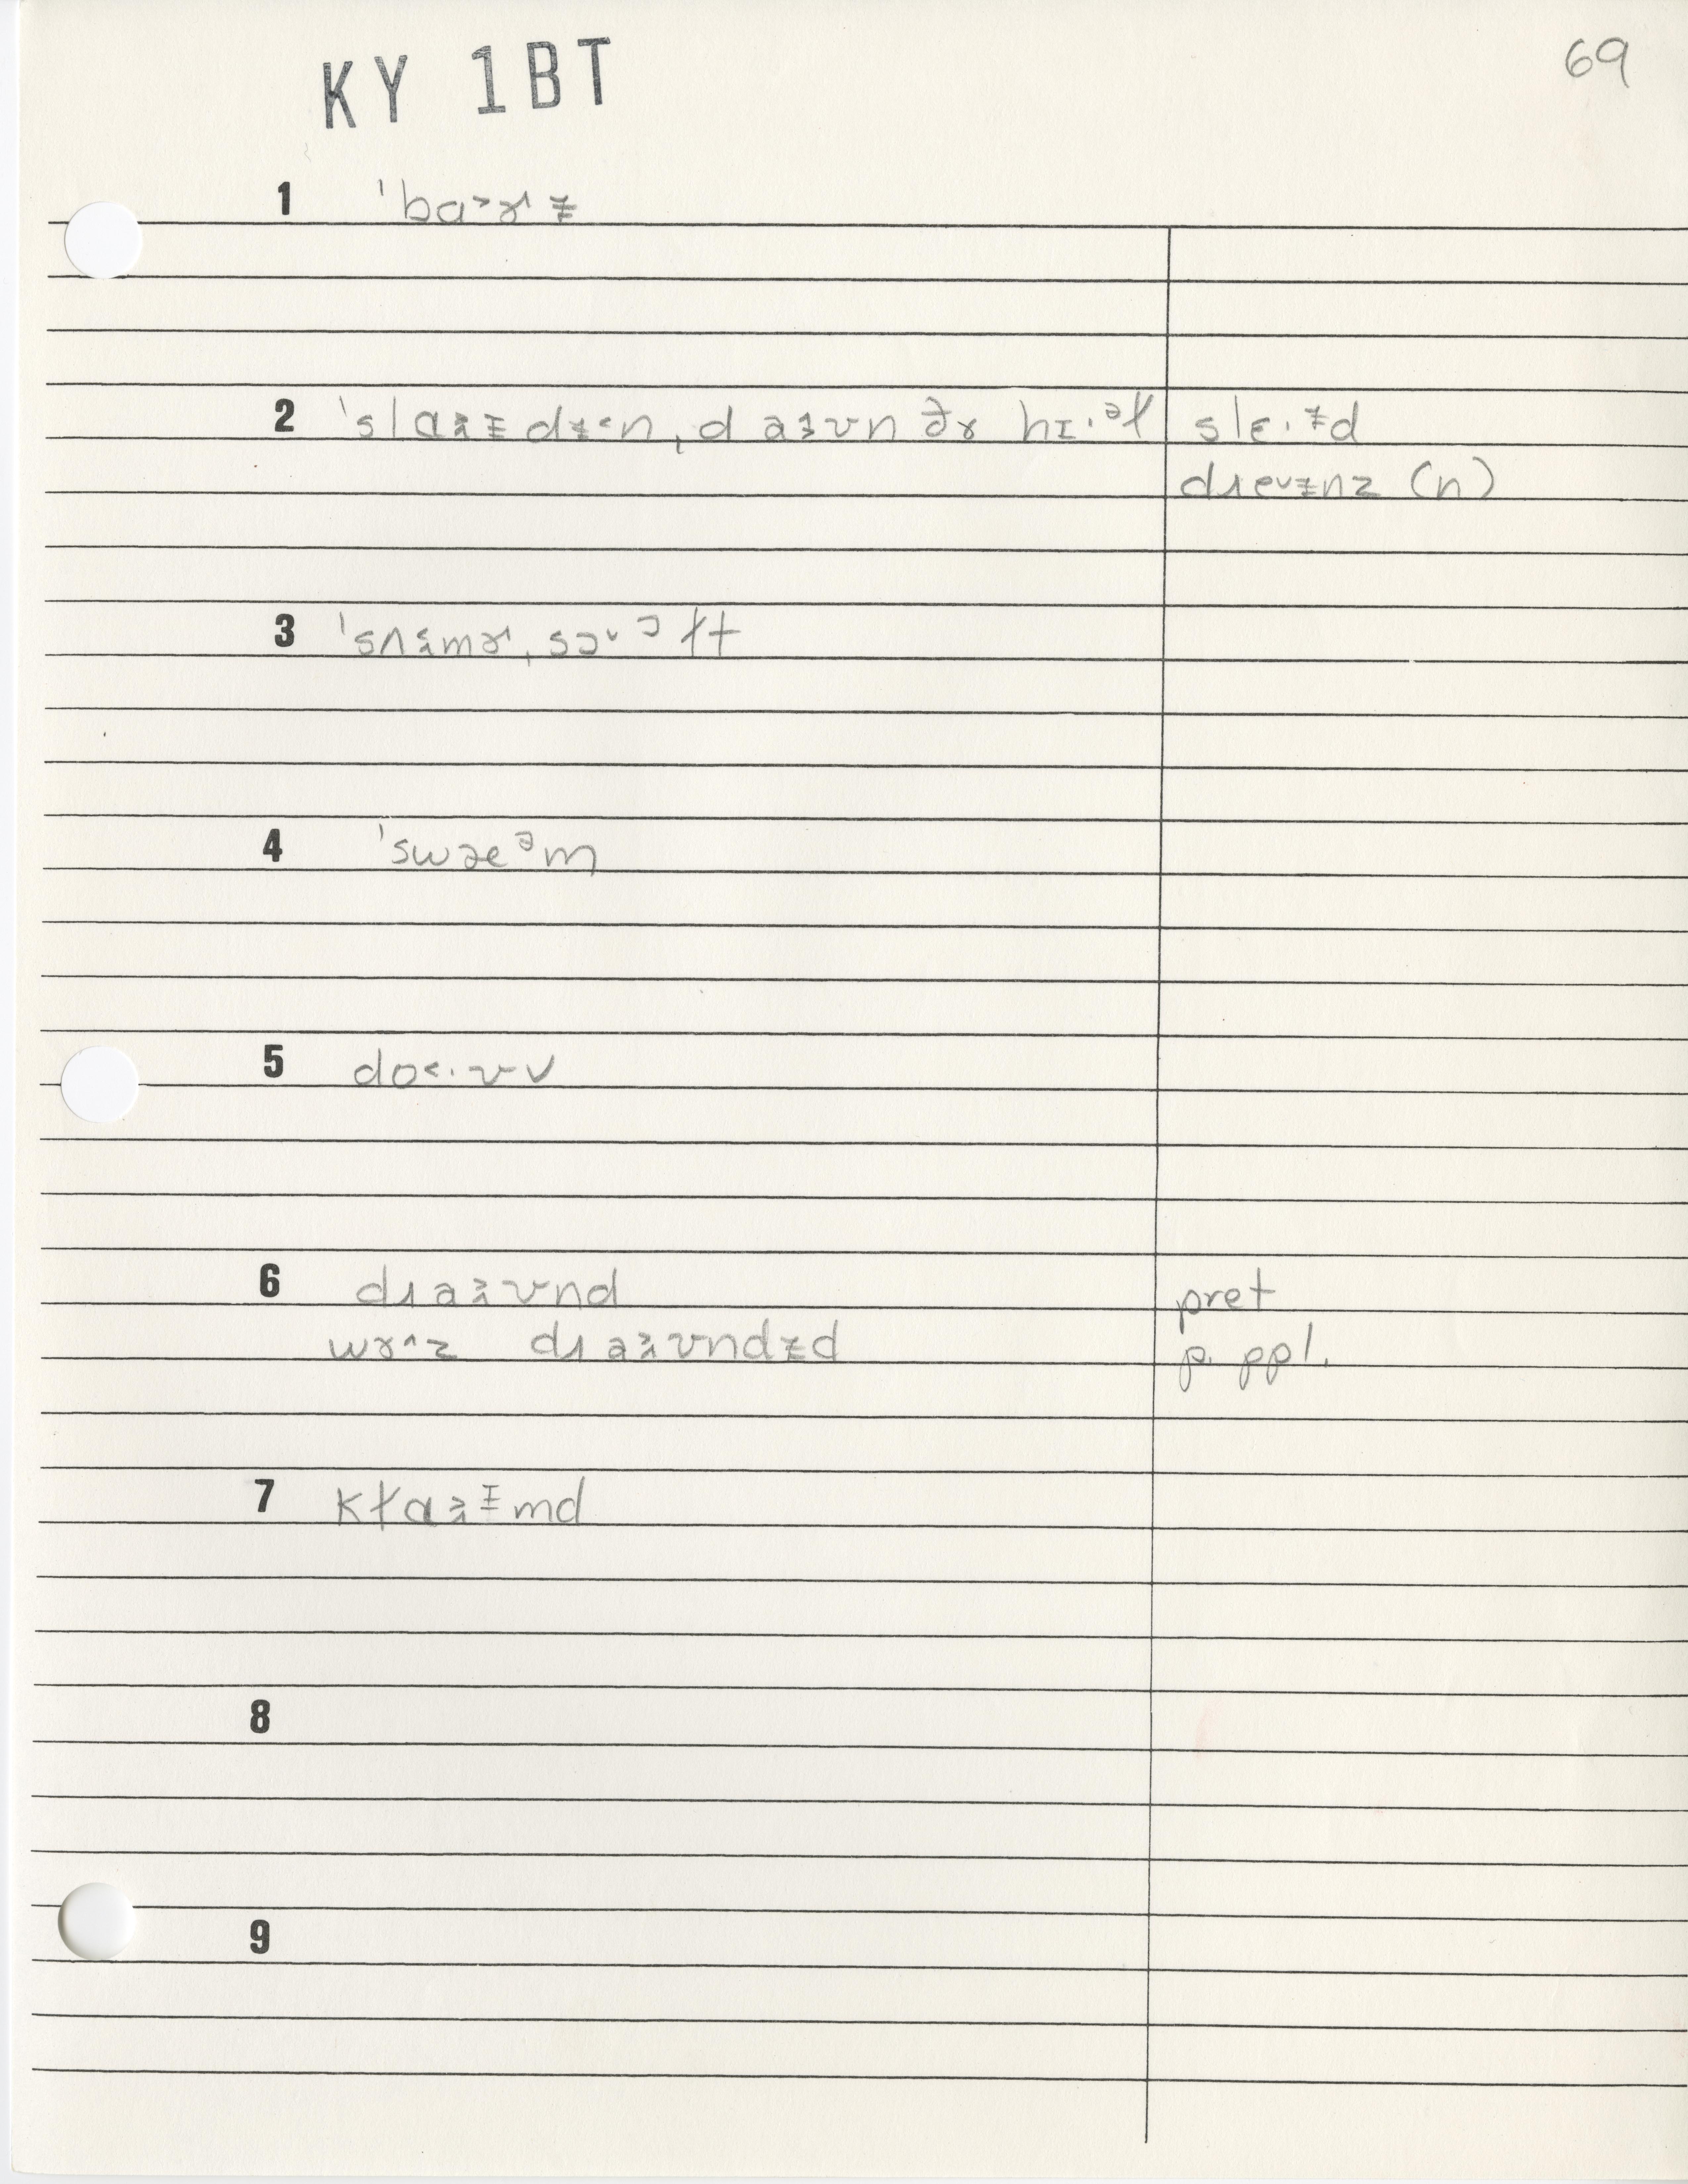 KY 1BT
69
1 ˈbɑ˃ɚ ɨ
2 ˈslɑ˃ɨ dɨ˂n, d a˃ʊn ðɚ hɪ·ᵊɫ slɛ·ᵻd
dɹe˅ɨnz (n)
3 ˈsʌ˂mɚ, sɔ˅ᵓ ɫt
4 ˈswæᵊm
5 do˂·ʊ v
6 dɹa˃ʊnd pret
wɚ^z dɹa˃ʊndɨd p. ppl.
7 kɫɑ˃ᵻmd
8
9